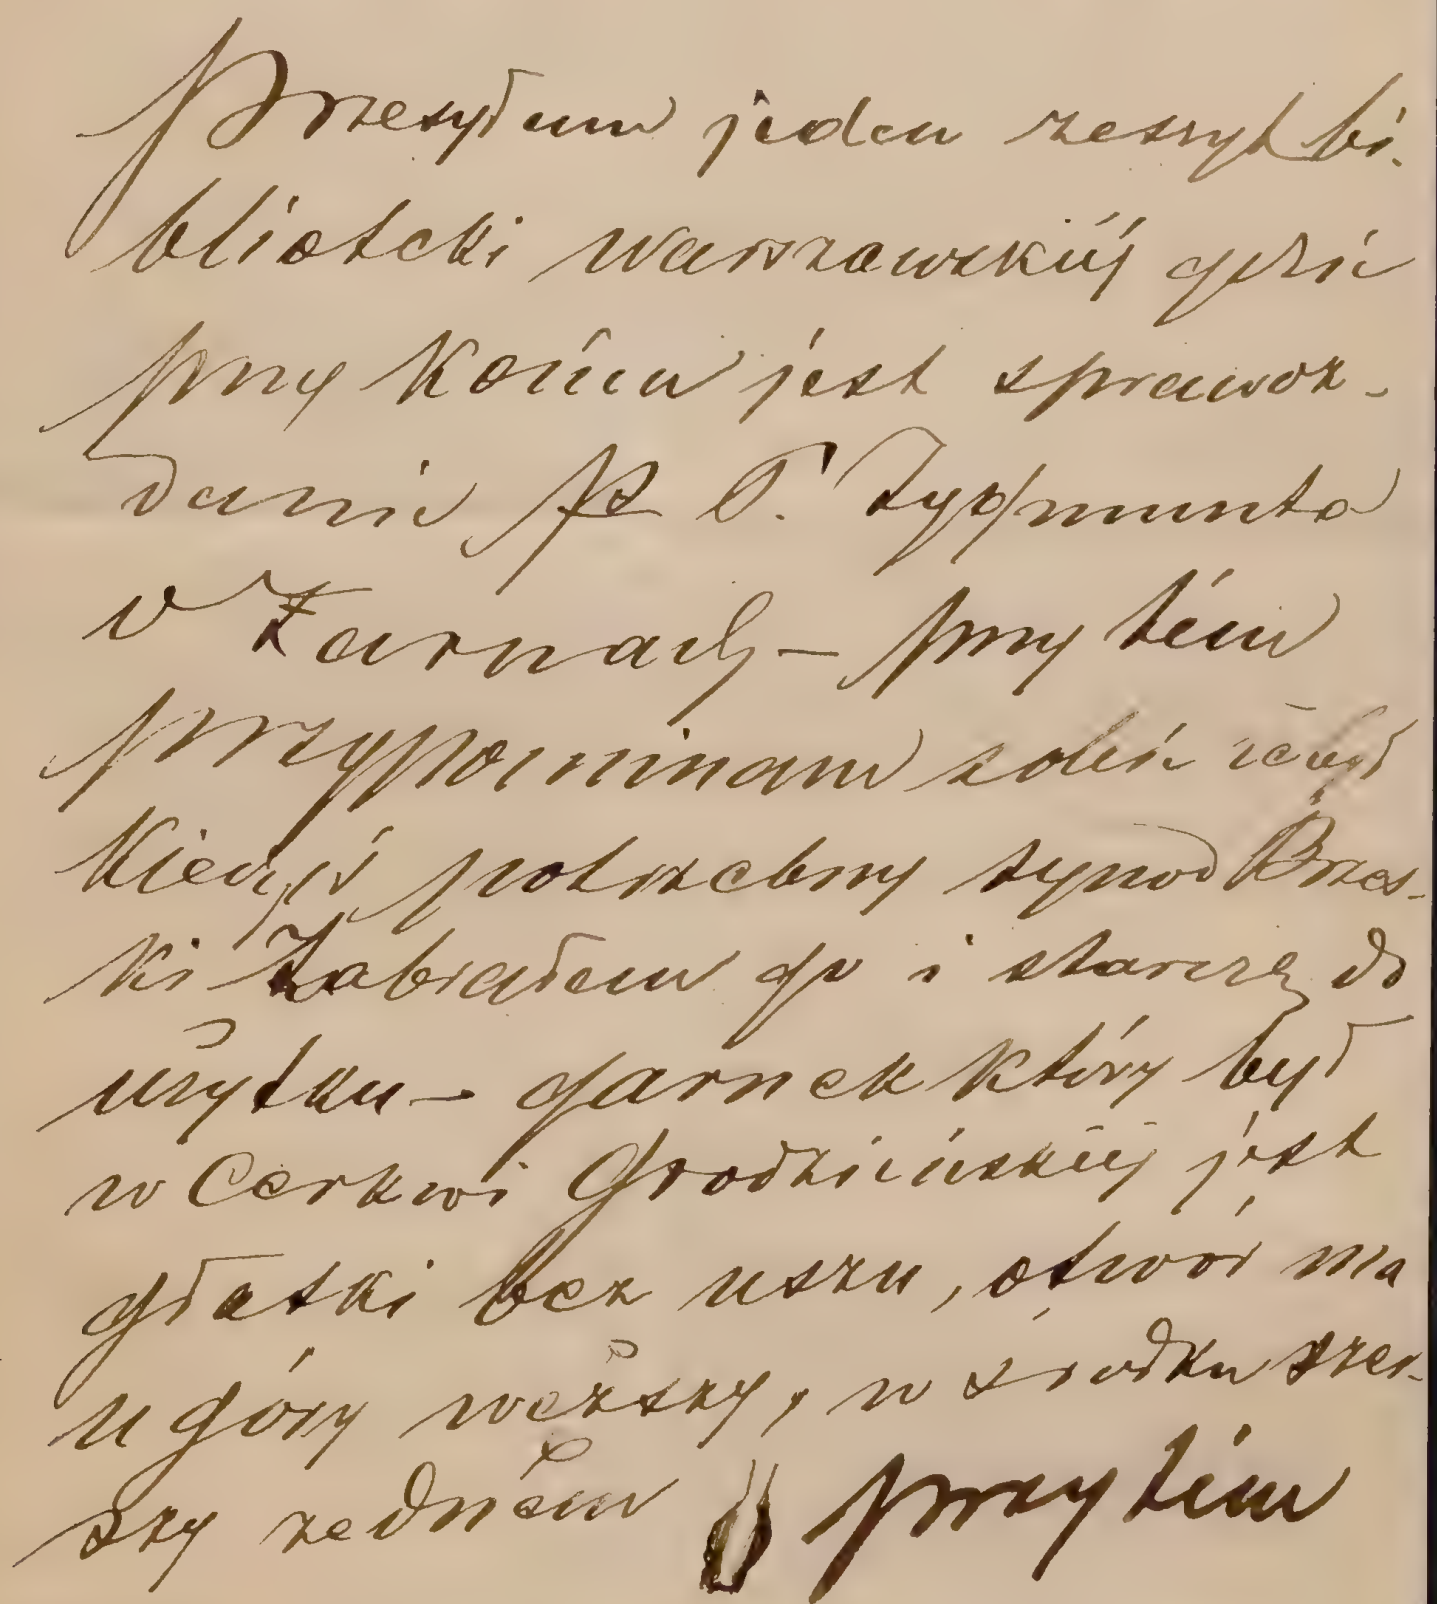 Przesyłam jeden zeszyt bi-
blioteki warszawskiéj gdzie
przy końcu jest sprawoz-
danie P. Zygmunta
w Żarnach – przy tém
przypominam sobie że był
kiedyś potrzebny synod Brzes-
ki zabrałem go i starczę do
użytku – garnek który był
w Cerkwi Grodzieńskiéj jest
gładki bez uszu, otwór ma
u góry węższy, w środku szer-
szy ze dnem przy tém